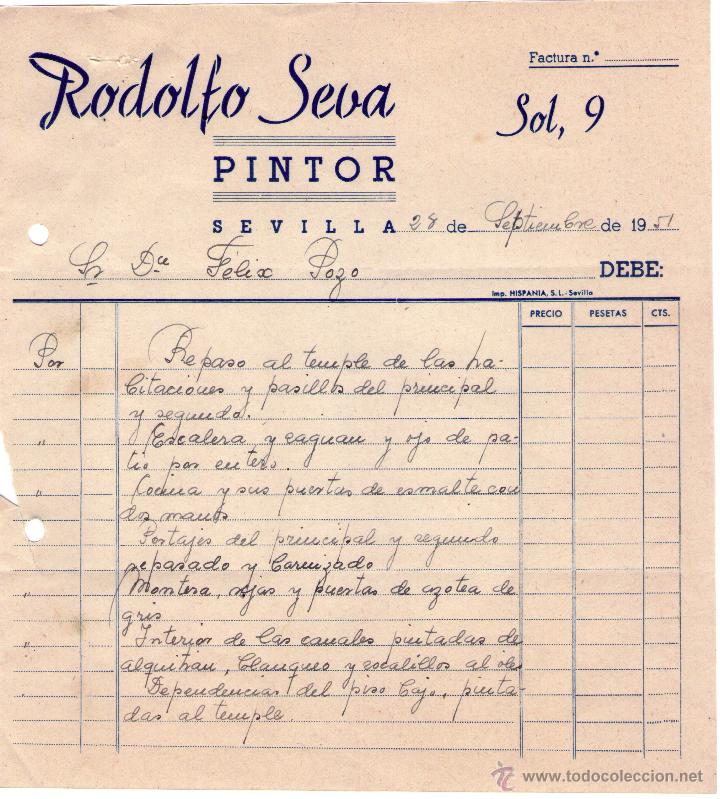 Factura n.º
Rodolfo Seva
Sol, 9
PINTOR
SEVILLA 28 de Septiembre de 1951
Sr Dn Felix Pozo DEBE:
Imp. HISPANIA, S.L.-Sevilla
PRECIO PESETAS CTS.
Por Repaso al temple de las ha-
bitaciones y pasillos del principal
y segundo.
" Escalera y zaguan y ojo de pa-
tio por entero.
" Cocina y sus puertas de esmalte con
dos manos
" Portajes del principal y segundo
repasado y barnizado
" Montera, rejas y puertas de azotea de
gris
" Interior de las canales pintadas de
alquitran, blanqueo y zocalillos al oleo
" Dependencias del piso bajo, pinta-
das al temple.
todocoleccion
www.todocoleccion.net